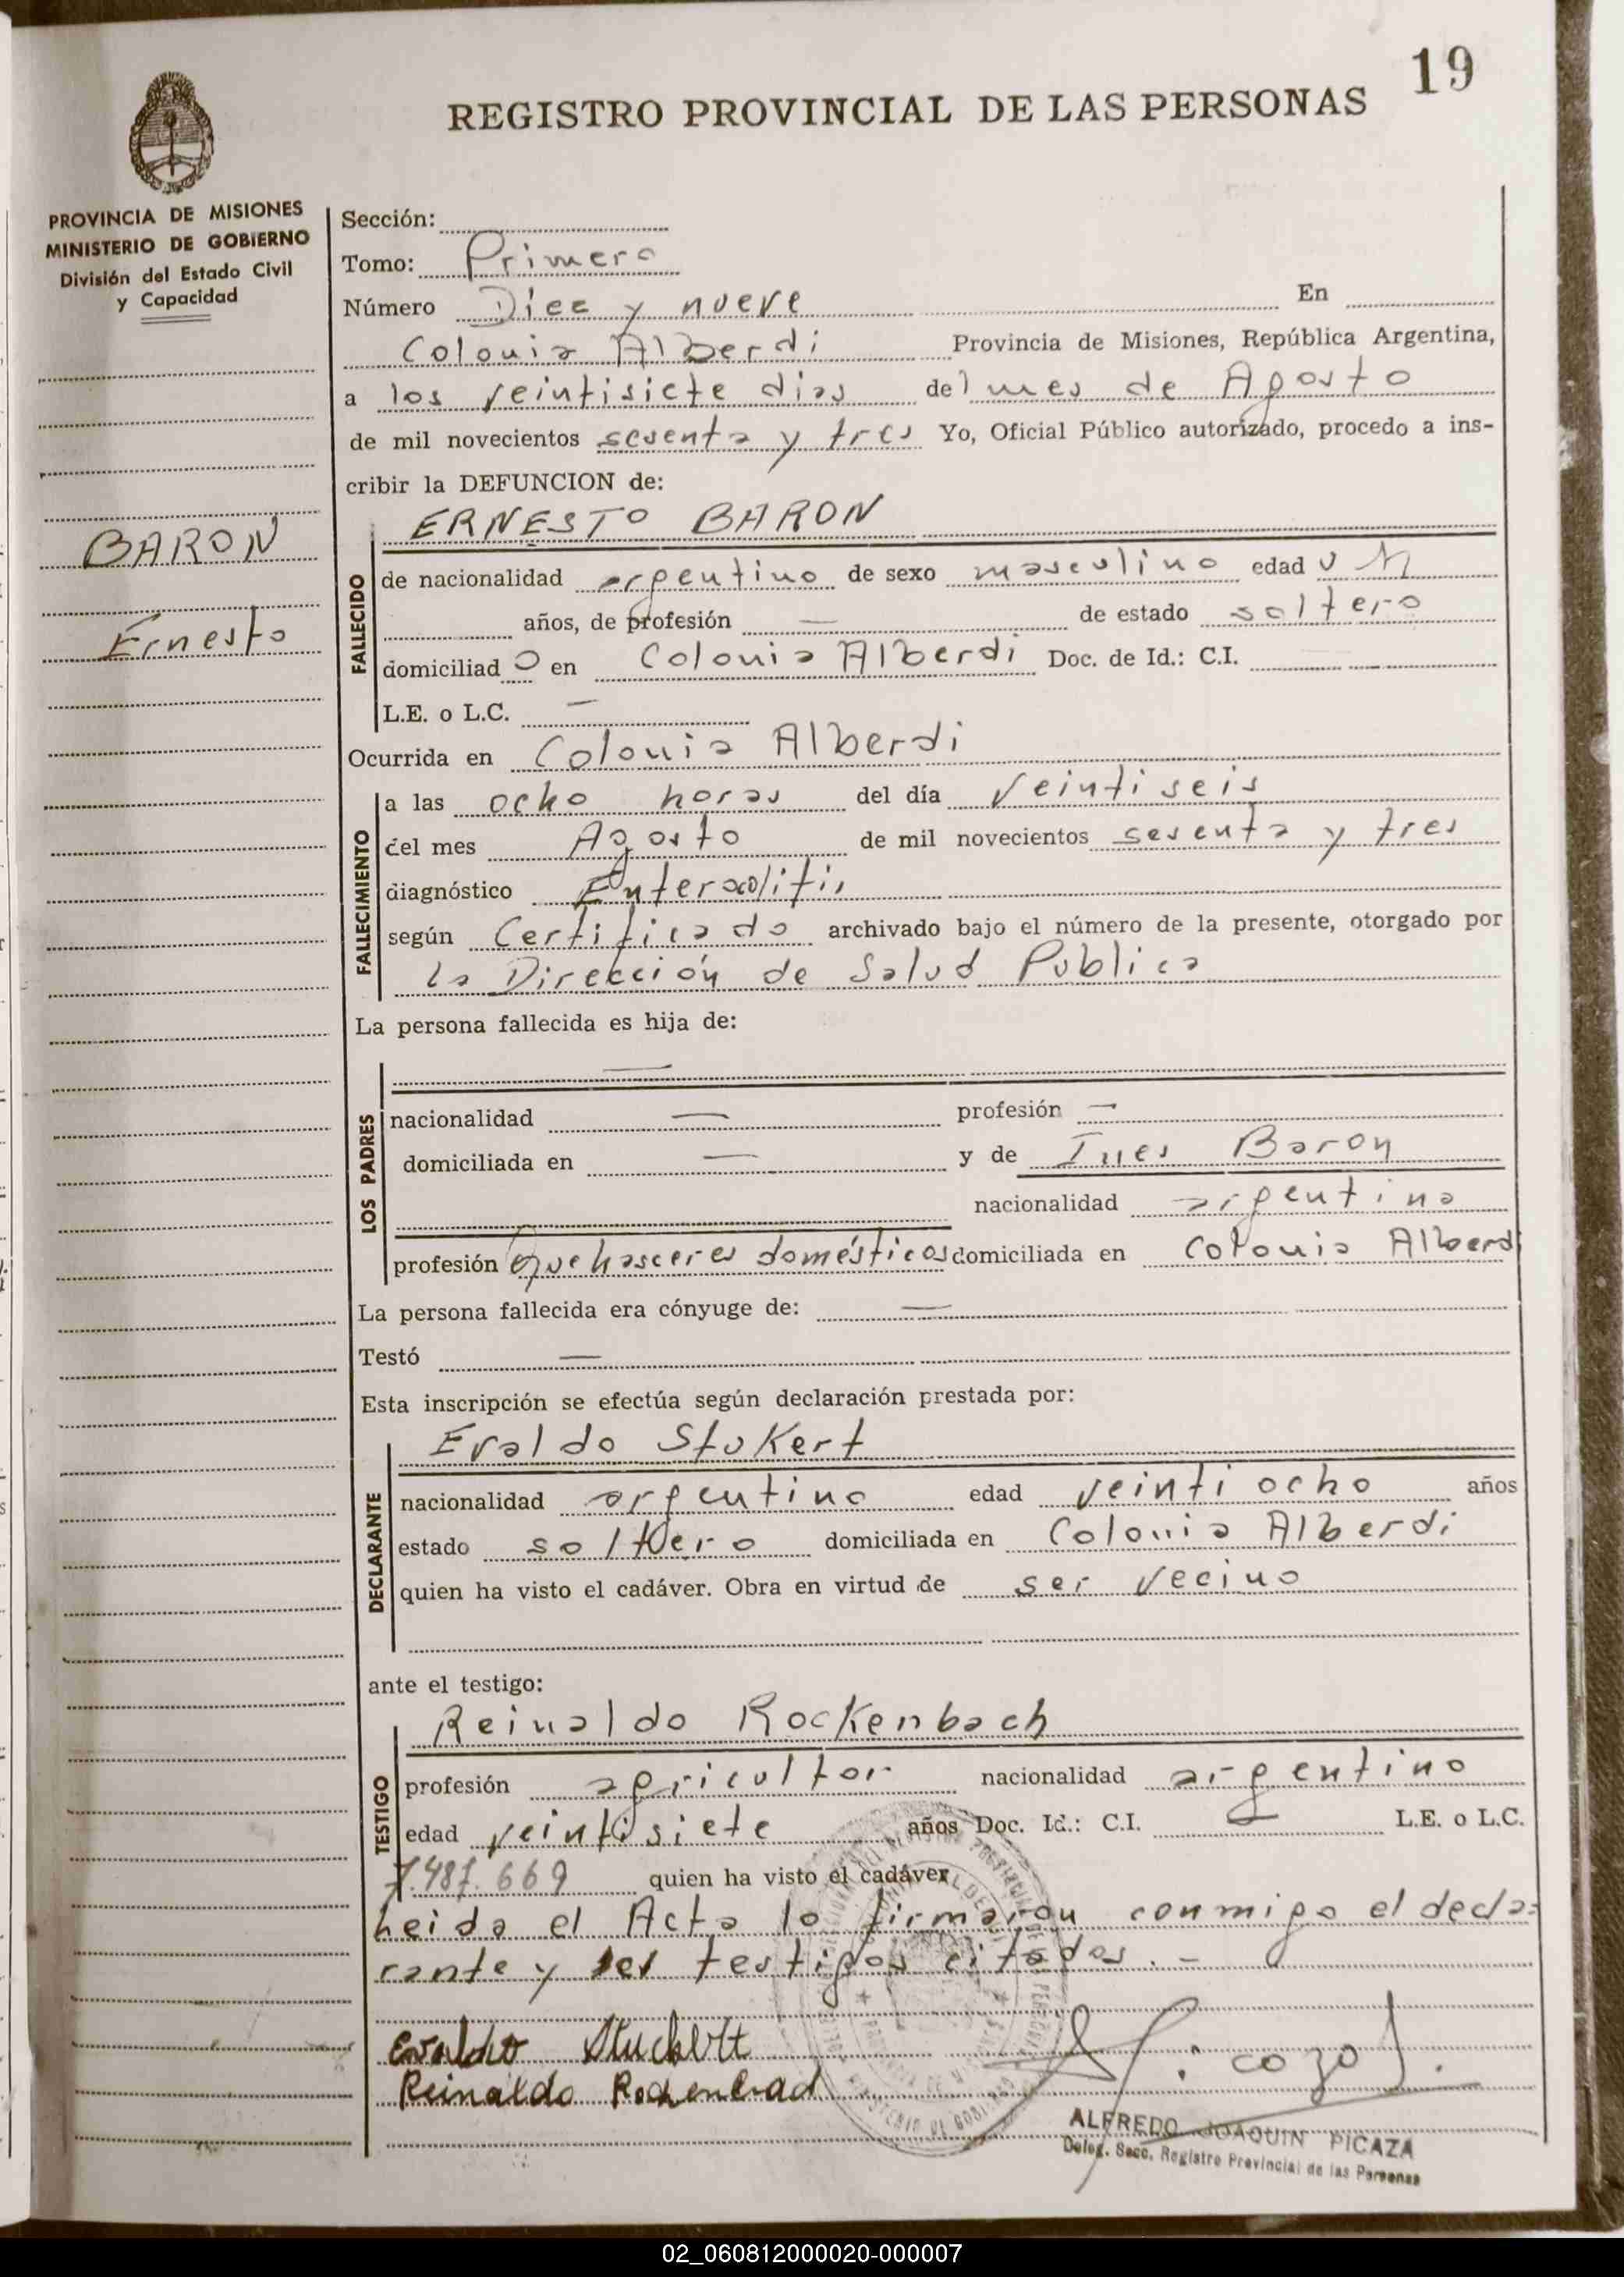 19
REGISTRO PROVINCIAL DE LAS PERSONAS
PROVINCIA DE MISIONES
MINISTERIO DE GOBIERNO
División del Estado Civil
y Capacidad
BARON
Ernesto
Sección:
Tomo: Primero
Número Diez y nueve En
Colonia Alberdi Provincia de Misiones, República Argentina,
a los veintisiete dias del mes de Agosto
de mil novecientos sesenta y tres Yo, Oficial Público autorizado, procedo a ins-
cribir la DEFUNCION de:
FALLECIDO
ERNESTO BARON
de nacionalidad argentino de sexo masculino edad un
años, de profesión — de estado soltero
domiciliado en Colonia Alberdi Doc. de Id.: C.I.
L.E. o L.C. —
Ocurrida en Colonia Alberdi
FALLECIMIENTO
a las ocho horas del día veintiseis
del mes Agosto de mil novecientos sesenta y tres
diagnóstico Enterocolitis
según Certificado archivado bajo el número de la presente, otorgado por
la Dirección de Salud Publica
La persona fallecida es hija de:
LOS PADRES
—
nacionalidad — profesión —
domiciliada en — y de Ines Baron
nacionalidad argentina
profesión Quehasceres domésticos domiciliada en Colonia Alberdi
La persona fallecida era cónyuge de: —
Testó —
Esta inscripción se efectúa según declaración prestada por:
DECLARANTE
Evaldo Stukert
nacionalidad argentino edad veintiocho años
estado soltero domiciliada en Colonia Alberdi
quien ha visto el cadáver. Obra en virtud de ser vecino
ante el testigo:
TESTIGO
Reinaldo Rockenbach
profesión agricultor nacionalidad argentino
edad veintisiete años Doc. Id.: C.I. — L.E. o L.C.
7.487.669 quien ha visto el cadáver
heida el Acta lo firmaron conmigo el decla=
rante y los testigos citados. -
Evaldo Stuckert
Reinaldo Rockenbach
ALFREDO JOAQUIN PICAZA
Deleg. Secc. Registro Provincial de las Personas
02_060812000020-000007